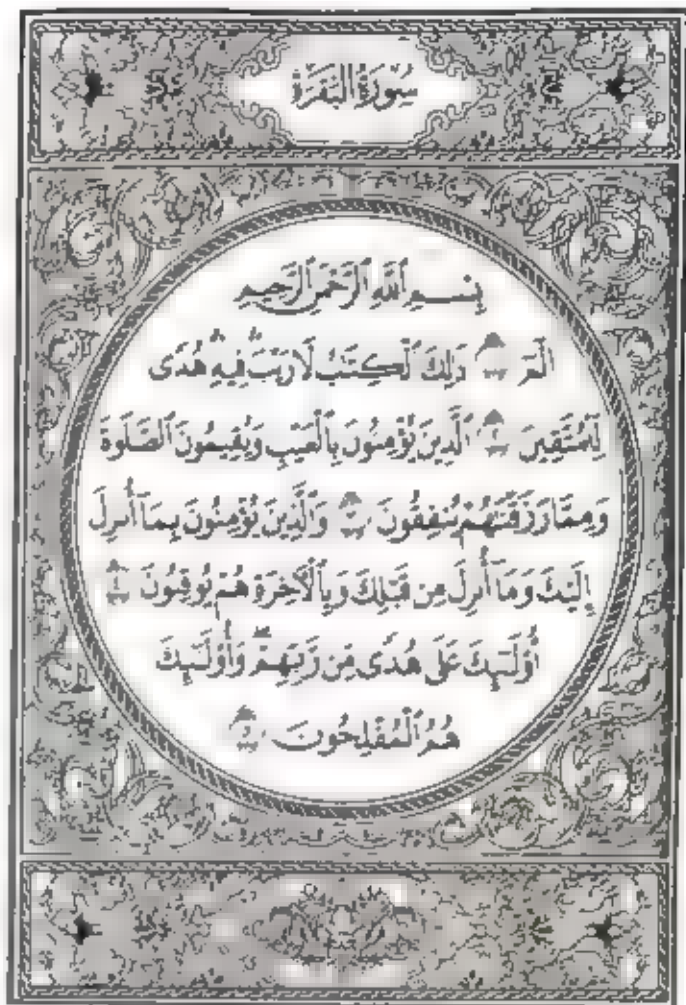 سُورَةُ الْبَقَرَةِ
بِسْمِ ٱللَّهِ ٱلرَّحْمَٰنِ ٱلرَّحِيمِ
الٓمٓ ذَٰلِكَ ٱلْكِتَٰبُ لَا رَيْبَ ۛ فِيهِ ۛ هُدًى
لِّلْمُتَّقِينَ ٱلَّذِينَ يُؤْمِنُونَ بِٱلْغَيْبِ وَيُقِيمُونَ ٱلصَّلَوٰةَ
وَمِمَّا رَزَقْنَٰهُمْ يُنفِقُونَ وَٱلَّذِينَ يُؤْمِنُونَ بِمَآ أُنزِلَ
إِلَيْكَ وَمَآ أُنزِلَ مِن قَبْلِكَ وَبِٱلْءَاخِرَةِ هُمْ يُوقِنُونَ
أُو۟لَٰٓئِكَ عَلَىٰ هُدًى مِّن رَّبِّهِمْ ۖ وَأُو۟لَٰٓئِكَ
هُمُ ٱلْمُفْلِحُونَ